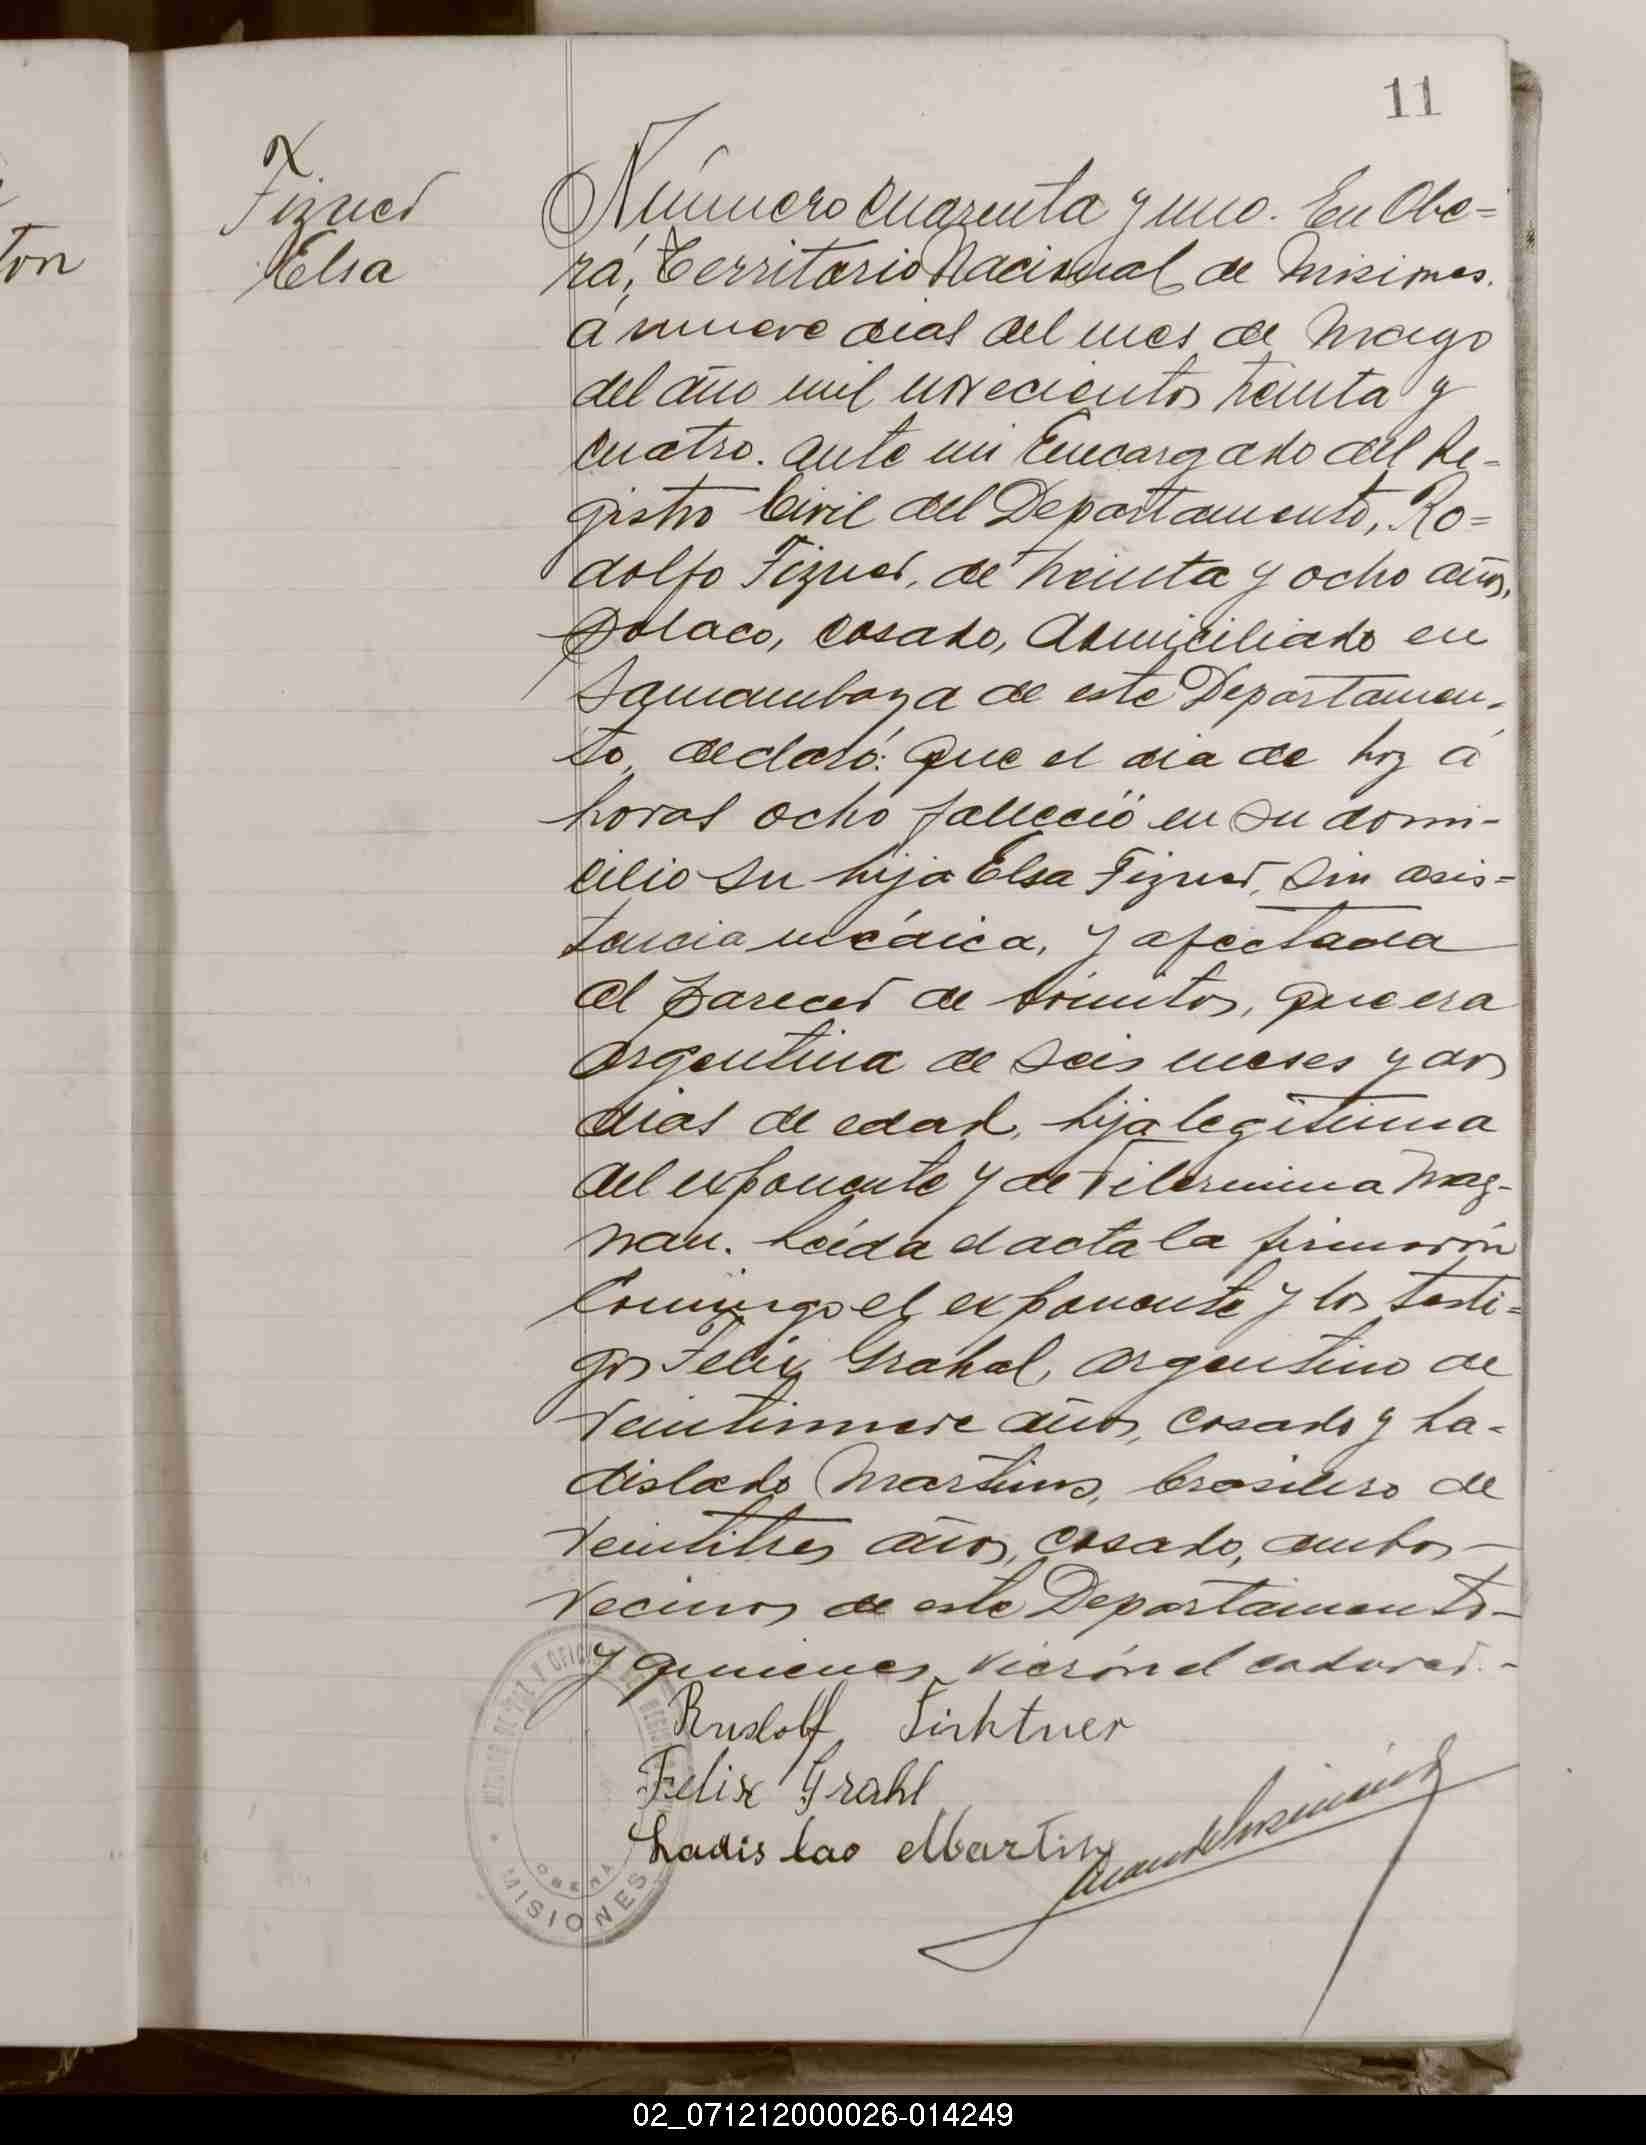 11
ton
Fizner
Elsa
Número cuarenta y uno. En Obe=
rá, Territorio Nacional de Misiones.
á nueve dias del mes de Mayo
del año mil novecientos treinta y
cuatro. ante mi Encargado del Re-
gistro Civil del Departamento, Ro=
dolfo Fizner, de treinta y ocho años,
polaco, casado, domiciliado en
Samambaya de este Departamen-
to, declaró: Que el dia de hoy á
horas ocho falleció en su domi-
cilio su hija Elsa Fizner, sin asis=
tencia médica, y afectada
al parecer de vómitos, que era
argentina de seis meses y dos
dias de edad, hija legitima
del exponente y de Vilermina Mag-
nan. Leída el acta la firmarón
Conmigo el exponente y los testi=
gos Felix Grahal, argentino de
veintinueve años, casado y La-
dislado Martins, brasilero de
veintitres años, casado, ambos
vecinos de este Departamento-
y quienes vierón el cadaver.-
Rudolf Fichtner
Felix Grahl
Ladislao Martin
JUZGADO DE PAZ Y OFICINA DEL REGISTRO
OBERA
MISIONES
02_071212000026-014249